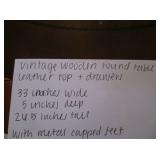 vintage wooden round table
leather top + drawers
33 inches wide
5 inches deep
24.5 inches tall
with metal capped feet